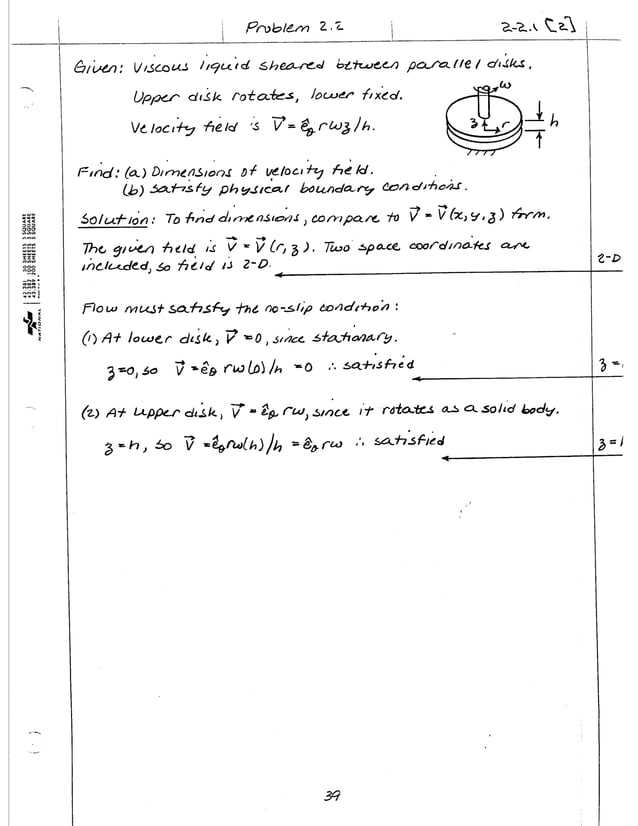 Problem 2.2
2-2.1 [2]
Given: Viscous liquid sheared between parallel disks.
Upper disk rotates, lower fixed.
Velocity field is V⃗ = ê_θ rωz/h.
ω
z
r
h
Find: (a) Dimensions of velocity field.
(b) Satisfy physical boundary conditions.
Solution: To find dimensions, compare to V⃗ = V⃗(x, y, z) form.
The given field is V⃗ = V⃗(r, z). Two space coordinates are
included, so field is 2-D.
2-D
Flow must satisfy the no-slip condition:
(1) At lower disk, V⃗ = 0, since stationary.
z = 0, so V⃗ = ê_θ rω(0)/h = 0 ∴ satisfied
z =
(2) At upper disk, V⃗ = ê_θ rω, since it rotates as a solid body.
z = h, so V⃗ = ê_θ rω(h)/h = ê_θ rω ∴ satisfied
z =
NATIONAL
39